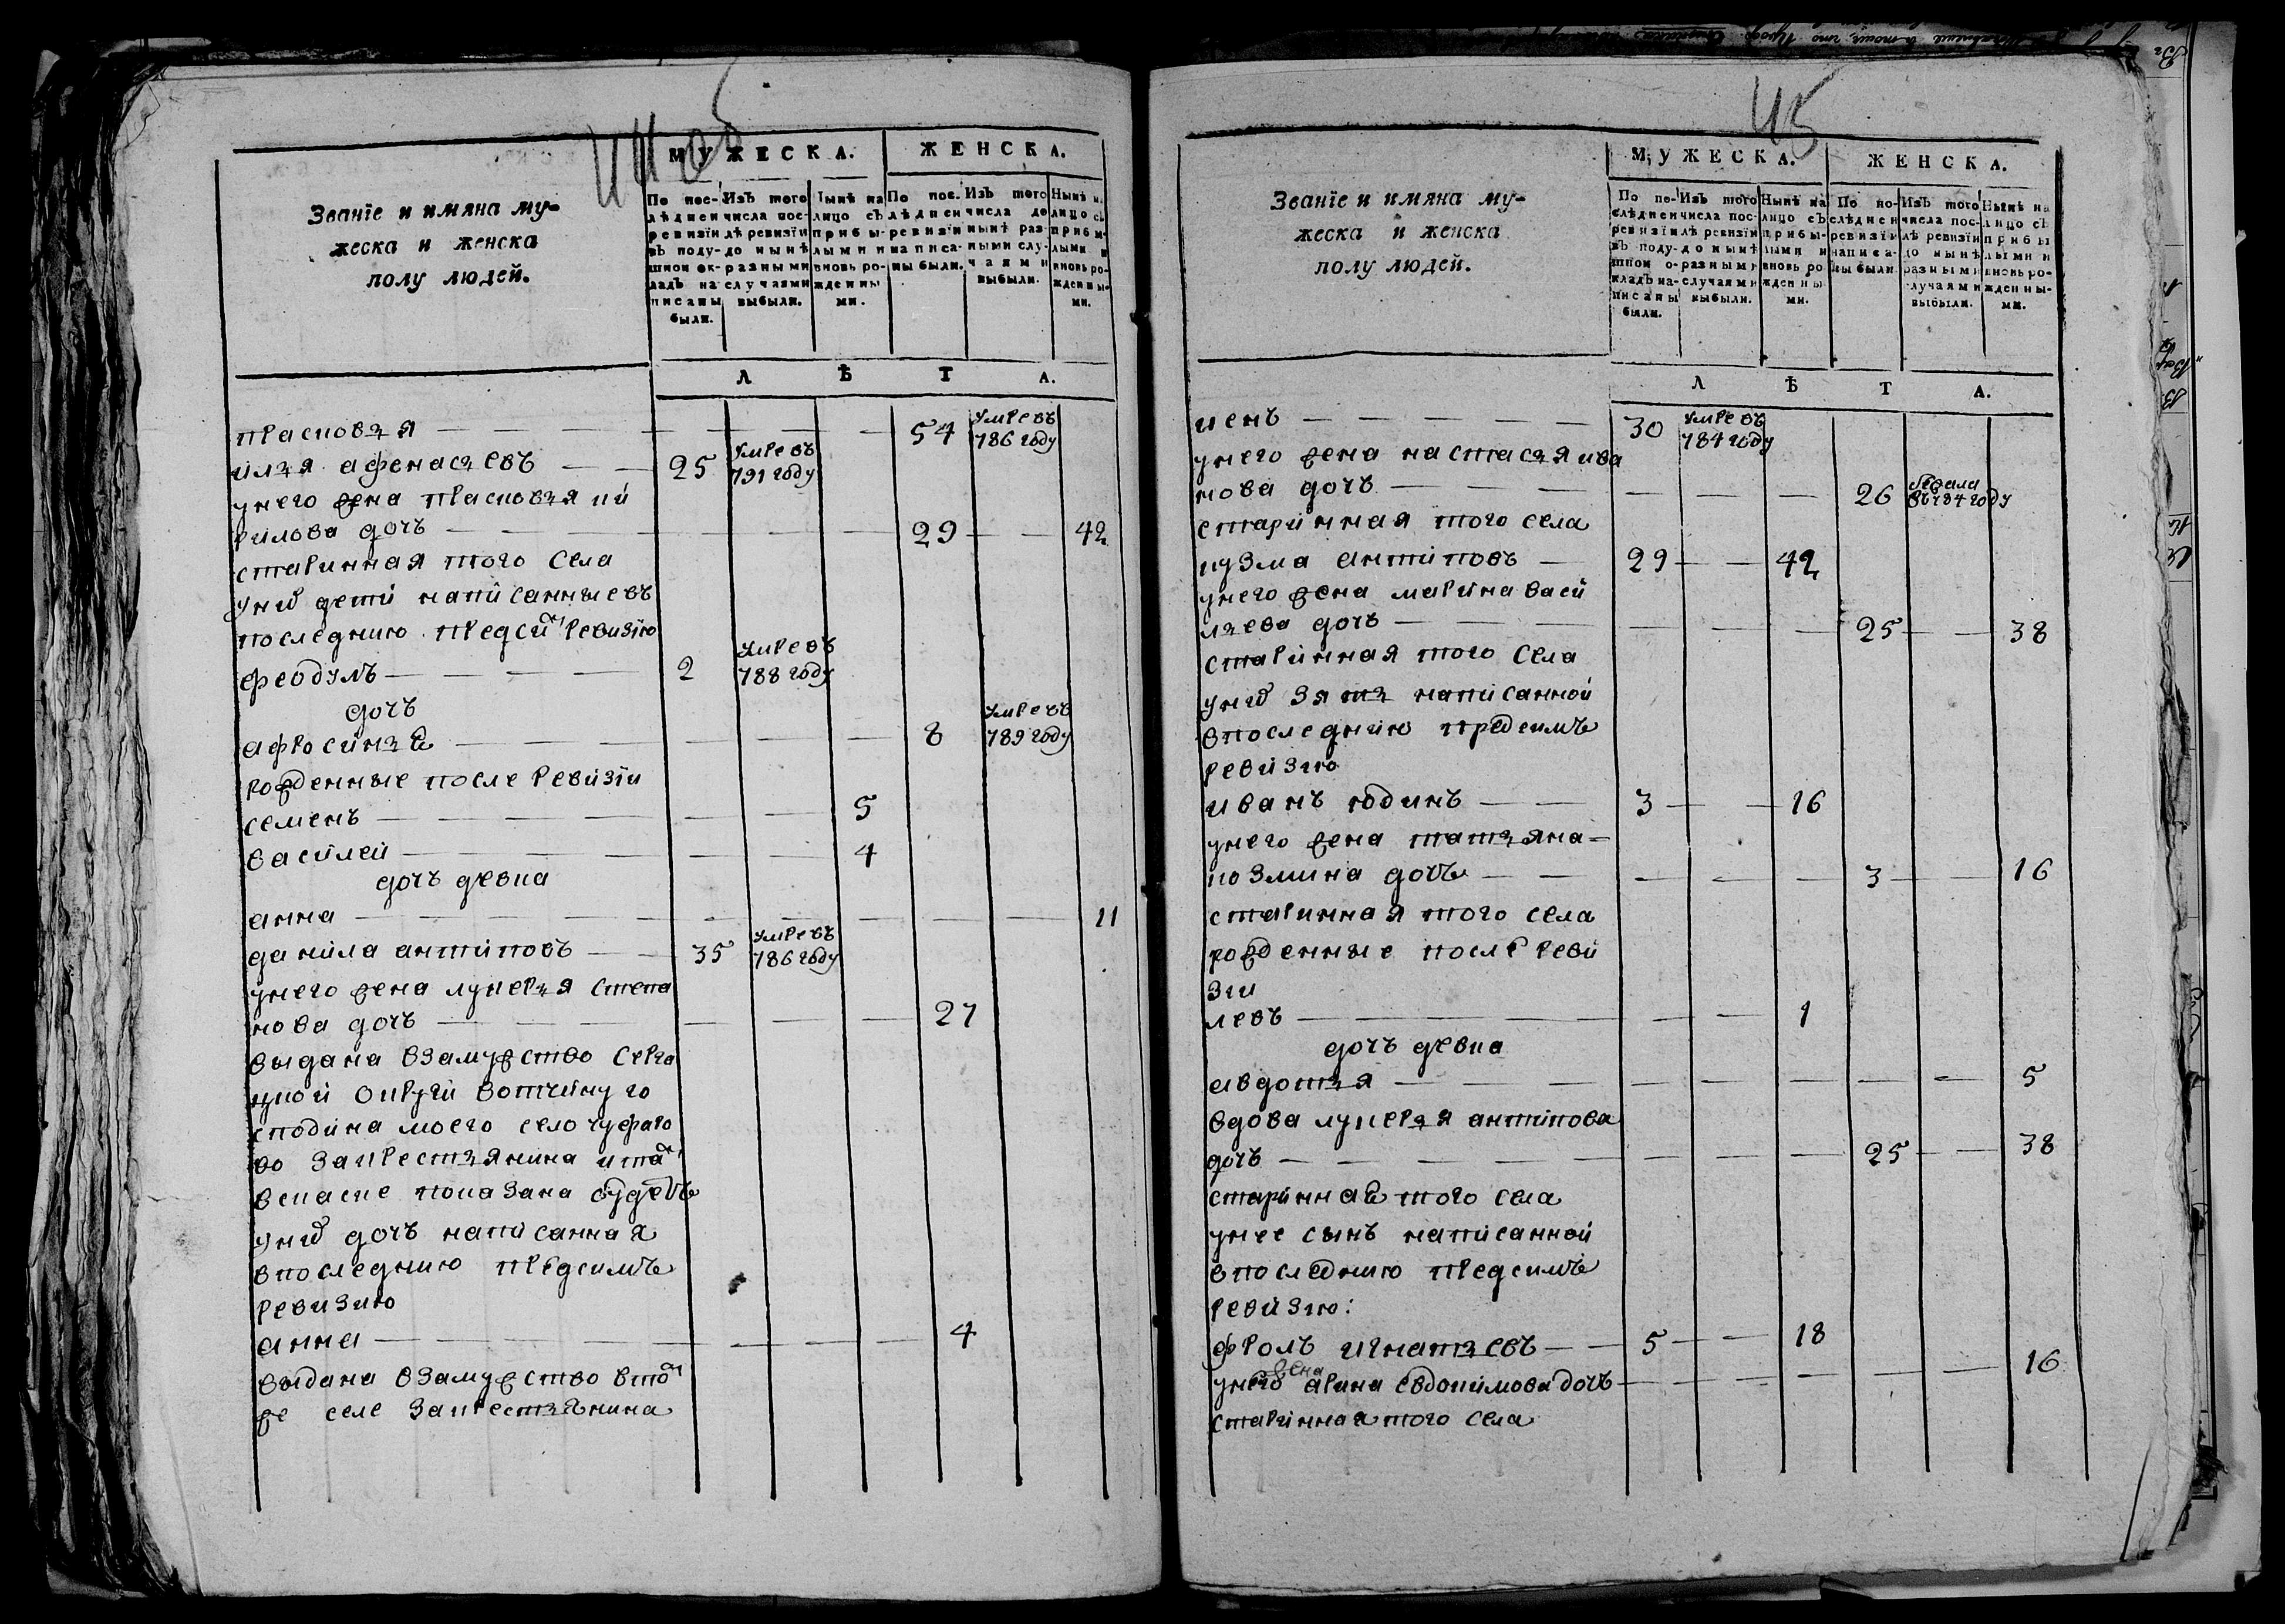 44 об
МУЖЕСКА. ЖЕНСКА.
Званїе и имяна му-
жеска и женска
полу людей.
По пос-
лѣдней
ревизїи
въ поду-
шной ок-
ладъ на
писаны
были.
Изъ того
числа пос-
лѣ ревизїи
до нынѣ
разными
случаями
выбыли.
нынѣ на
лицо съ
прибы-
лыми и
вновь ро-
жденны
ми.
По пос.
лѣдней
ревизїи
написа-
ны были.
Изъ того
числа до
нынѣ раз-
ными слу-
чаями
выбыли.
Нынѣ н.
лицо съ
прибы-
лыми и
вновь ро-
жденны-
ми.
Л Ѣ Т А.
прасковья 54 Умре въ 786 году
илья афенасьевъ 25 Умре въ 791 году
унего жена прасковья ки
рилова дочь 29 42
старинная того села
унихъ дети написанныевъ
последнию предсимъ ревизїю
феодулъ 2 умре въ 788 году
дочь
афросинья 8 умре въ 789 году
рожденные после ревизїи
семенъ 5
василей 4
дочь девка
анна 11
данила антиповъ 35 умре въ 786 году
унего жена лукерья степа
нова дочь 27
выдана взамужство серга
цкой округи вотчину го
сподина моего село чуфаро
во закрестьянина итамъ
вскаске показана будетъ
унихъ дочь написанная
впоследнию предсимъ
ревизию
анна 4
выдана взамужство втомъ
же селе закрестьянина
45
МУЖЕСКА. ЖЕНСКА.
Званїе и имяна му-
жеска и женска
полу людей.
По по-
слѣдней
ревизїи
въ поду-
шной о-
кладъ на-
писаны
были.
Изъ того
числа пос-
лѣ ревизїи
до нынѣ
разными
случаями
выбыли.
Нынѣ на
лицо съ
прибы-
лыми и
вновь ро
жденны-
ми.
По по-
слѣдней
ревизїи
написа-
ны были
Изъ того
числа пос-
лѣ ревизїи
до нынѣ
разными
случаями
выбыли.
Нынѣ на
лицо съ
прибы
лыми и
вновь ро-
жденны-
ми.
Л Ѣ Т А.
кенъ 30 умре въ 784 году
унего жена настасья ива
нова дочь 26 бежала въ 784 году
старинная того села
кузма антиповъ 29 42
унего жена марина васи
льева дочь 25 38
старинная того села
унихъ зять написанной
впоследнию предсимъ
ревизию
иванъ юдинъ 3 16
унего жена татьяна
козмина дочь 3 16
старинная того села
рожденные после реви
зии
левъ 1
дочь девка
авдотья 5
вдова лукерья антипова
дочь 25 38
старинная того села
унее сынъ написанной
впоследнию предсимъ
ревизию:
фролъ игнатьевъ 5 18
унего жена арина евдокимова дочь 16
старинная того села